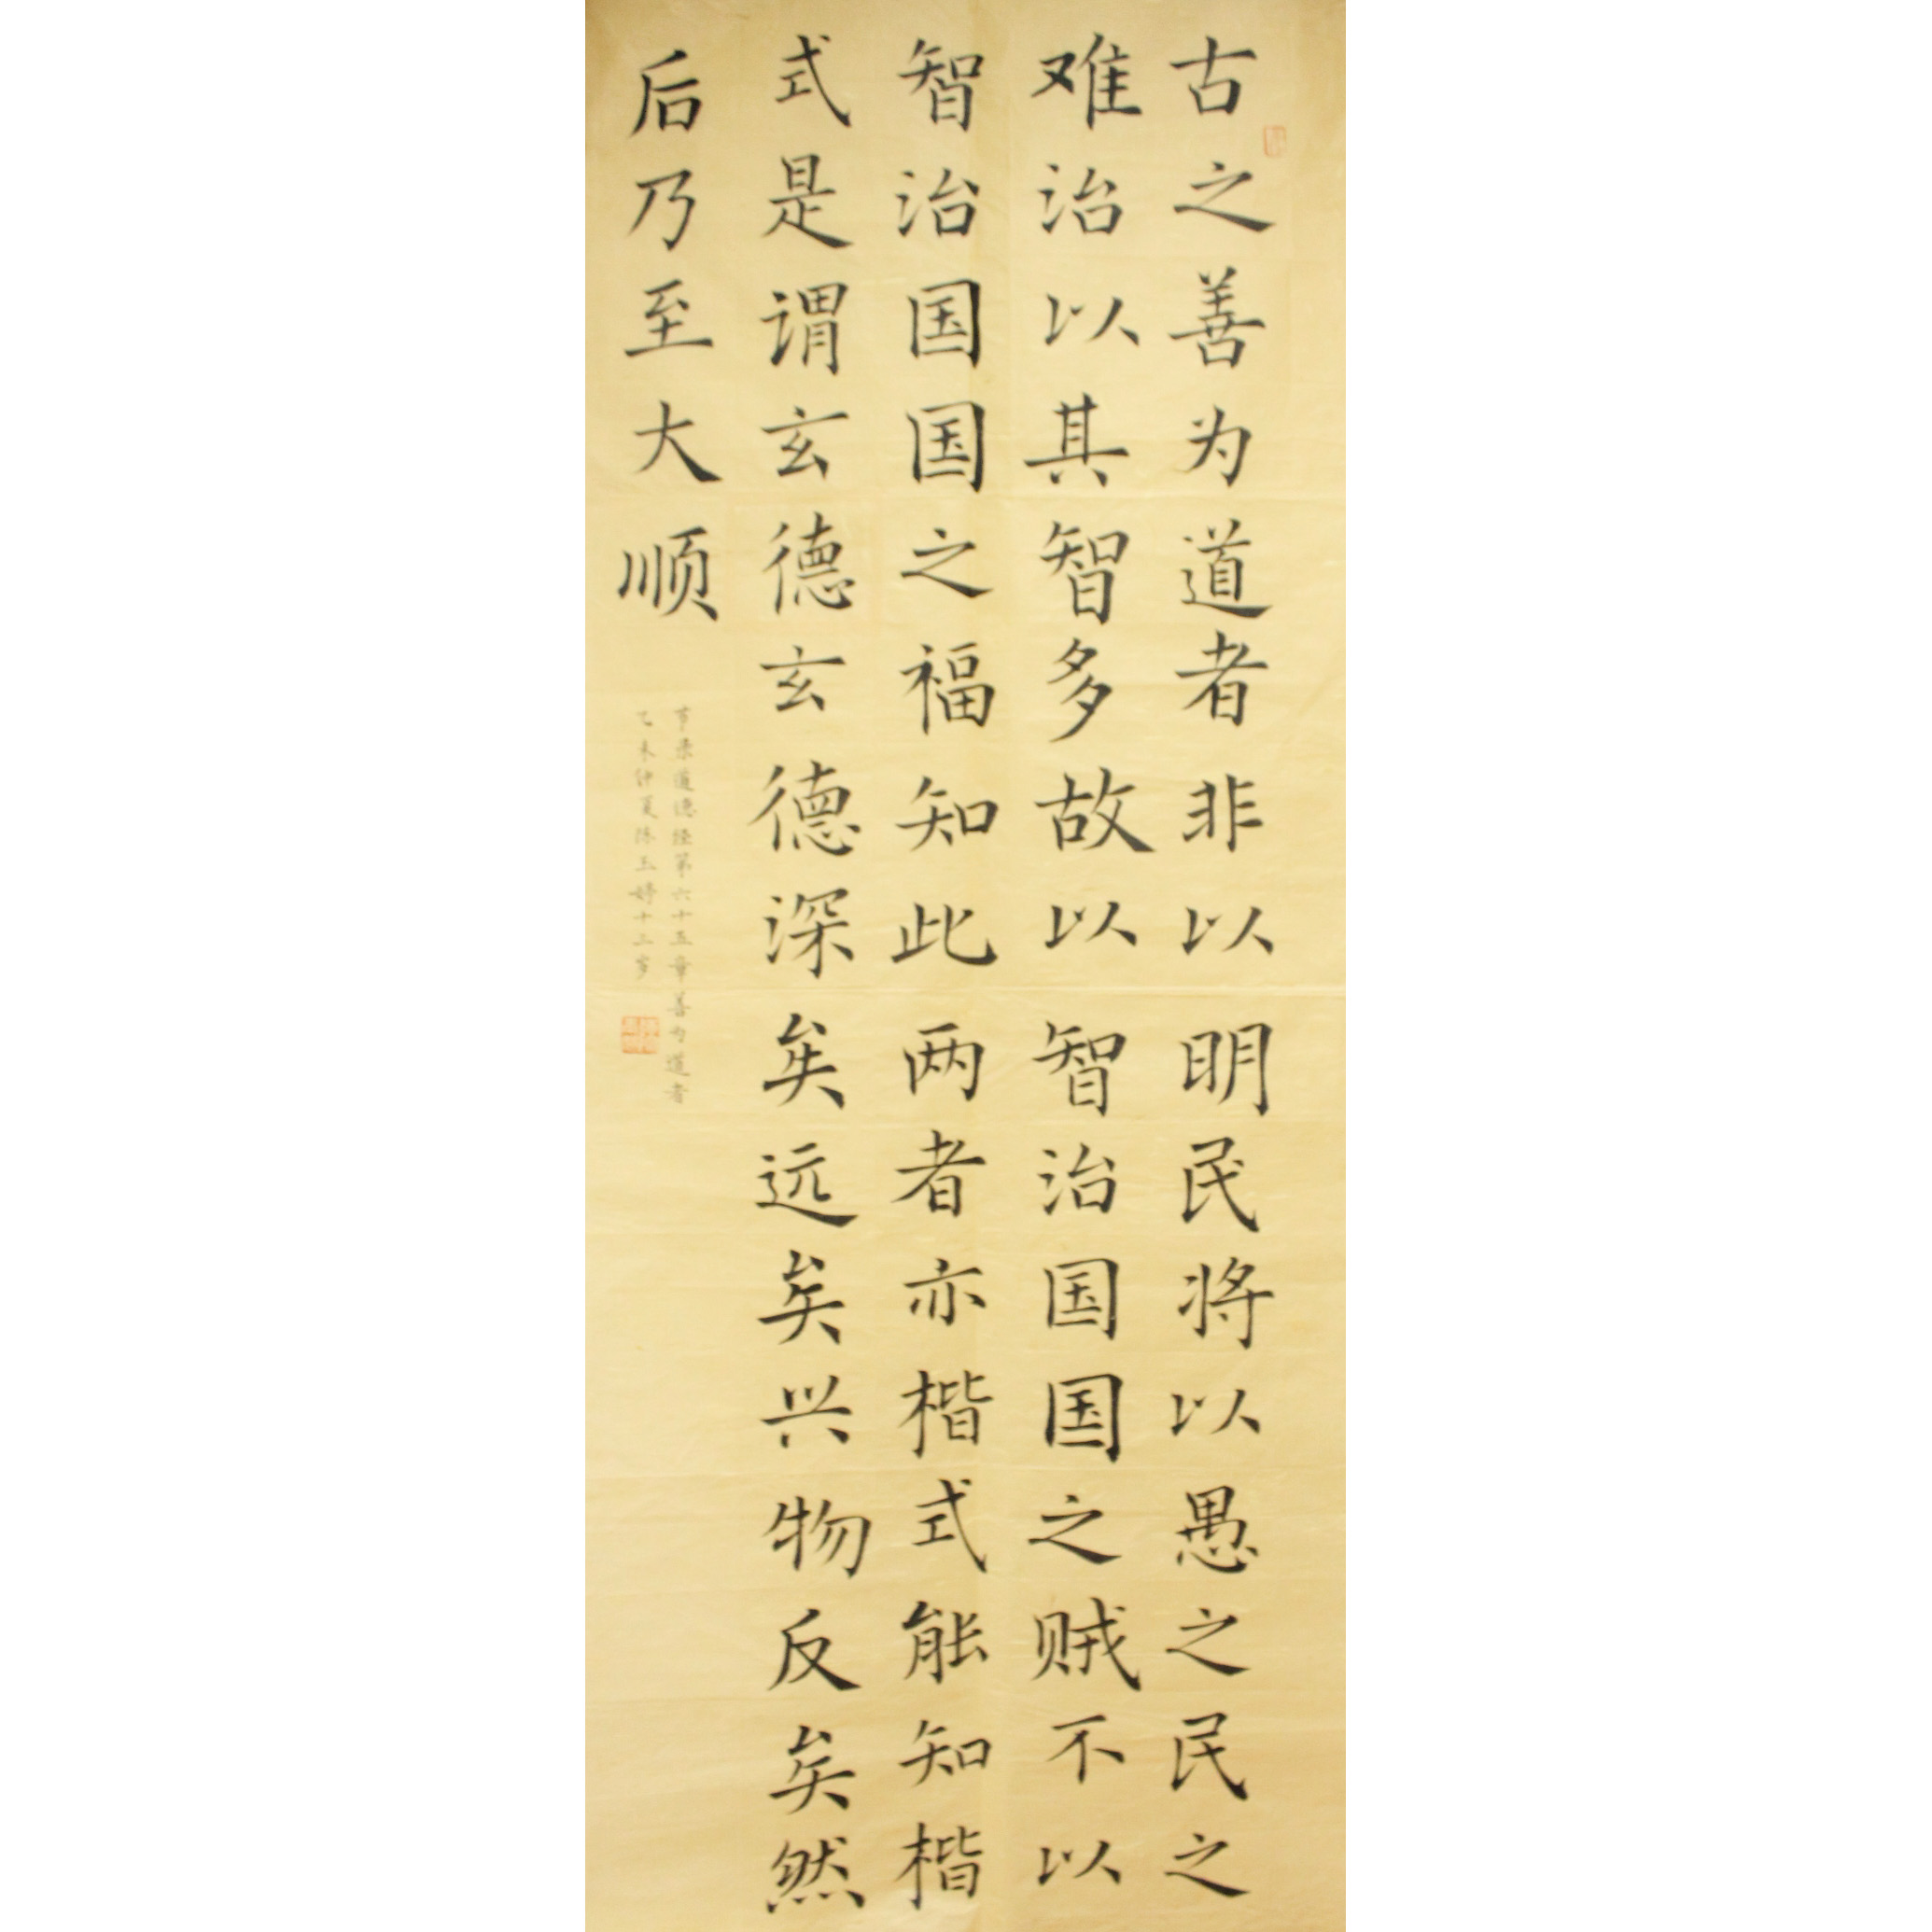 古之善为道者非以明民将以愚之民之
难治以其智多故以智治国国之贼不以
智治国国之福知此两者亦楷式能知楷
式是谓玄德玄德深矣远矣兴物反矣然
后乃至大顺
节录道德经第六十五章善为道者
乙未仲夏陈玉婷十三岁